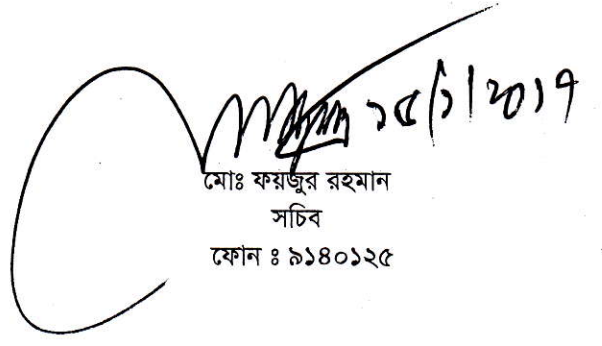 ১৫/১/২০১৭
মোঃ ফয়জুর রহমান
সচিব
ফোন ঃ ৯১৪০১২৫